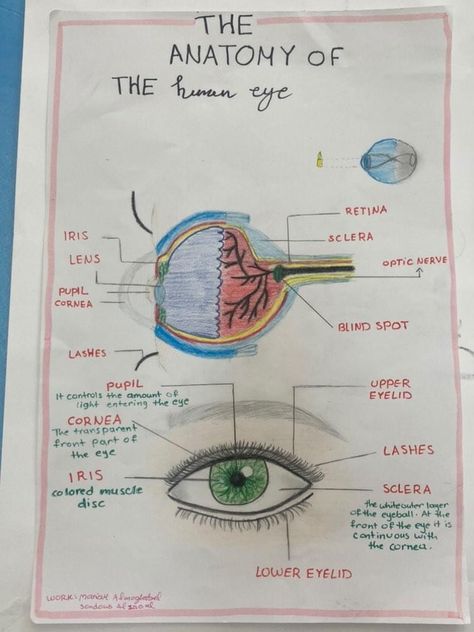 THE
ANATOMY OF
THE human eye
RETINA
SCLERA
OPTIC NERVE
BLIND SPOT
IRIS
LENS
PUPIL
CORNEA
LASHES
PUPIL
It controls the amount of
light entering the eye
CORNEA
The transparent
front part of
the eye
IRIS
colored muscle
disc
UPPER
EYELID
LASHES
SCLERA
the white outer layer
of the eyeball. At the
front of the eye it is
continuous with
the cornea.
LOWER EYELID
WORK: